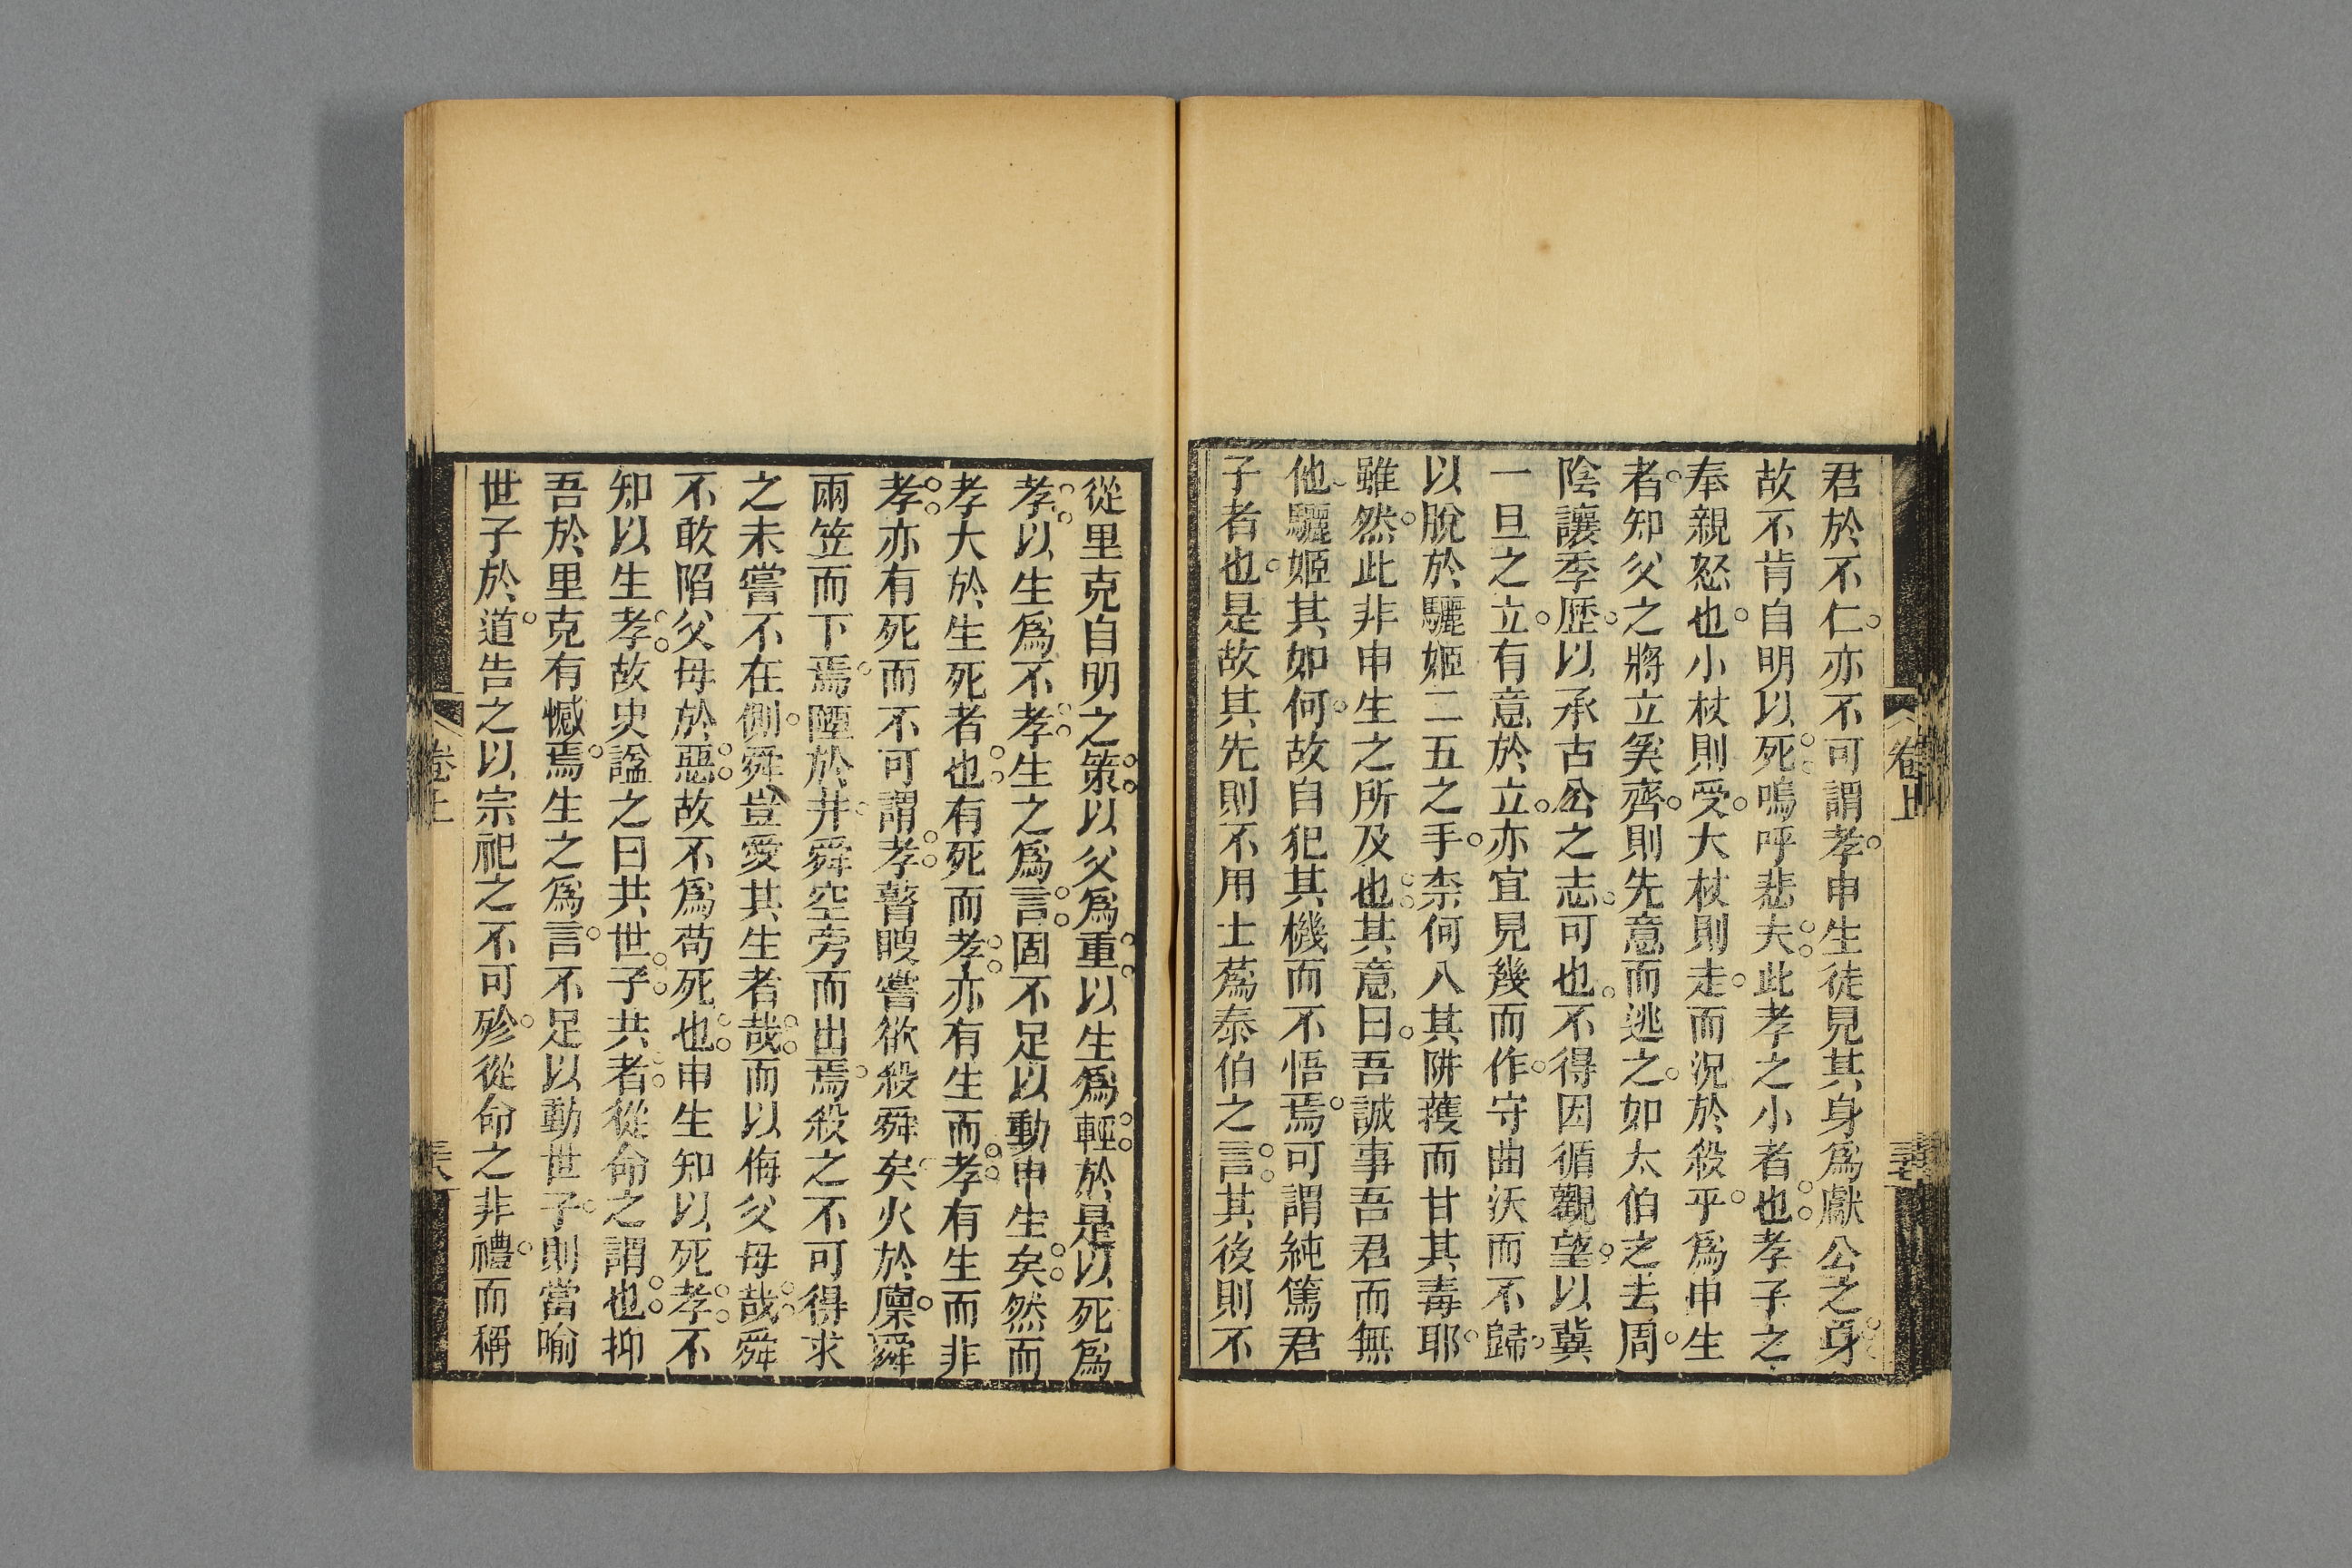 君於不仁亦不可謂孝申生徒見其身爲獻公之身
故不肯自明以死嗚呼悲夫此孝之小者也孝子之
奉親怒也小杖則受大杖則走而況於殺乎爲申生
者知父之將立奚齊則先意而逃之如太伯之去周
陰讓季歷以承古公之志可也不得因循觀望以冀
一旦之立有意於立亦宜見幾而作守曲沃而不歸
以脫於驪姬二五之手柰何入其阱蠖而甘其毒耶
雖然此非申生之所及也其意曰吾誠事吾君而無
他驪姬其如何故自犯其機而不悟焉可謂純篤君
子者也是故其先則不用士蔿泰伯之言其後則不
卷上
從里克自明之策以父爲重以生爲輕於是以死爲
孝以生爲不孝生之爲言固不足以動申生矣然而
孝大於生死者也有死而孝亦有生而孝有生而非
孝亦有死而不可謂孝瞽瞍嘗欲殺舜矣火於廩舜
兩笠而下焉陻於井舜空旁而出焉殺之不可得求
之未嘗不在側舜豈愛其生者哉而以侮父母哉舜
不敢陷父母於惡故不爲苟死也申生知以死孝不
知以生孝故史諡之曰共世子共者從命之謂也抑
吾於里克有憾焉生之爲言不足以動世子則當喻
世子於道告之以宗祀之不可殄從命之非禮而稱
卷上